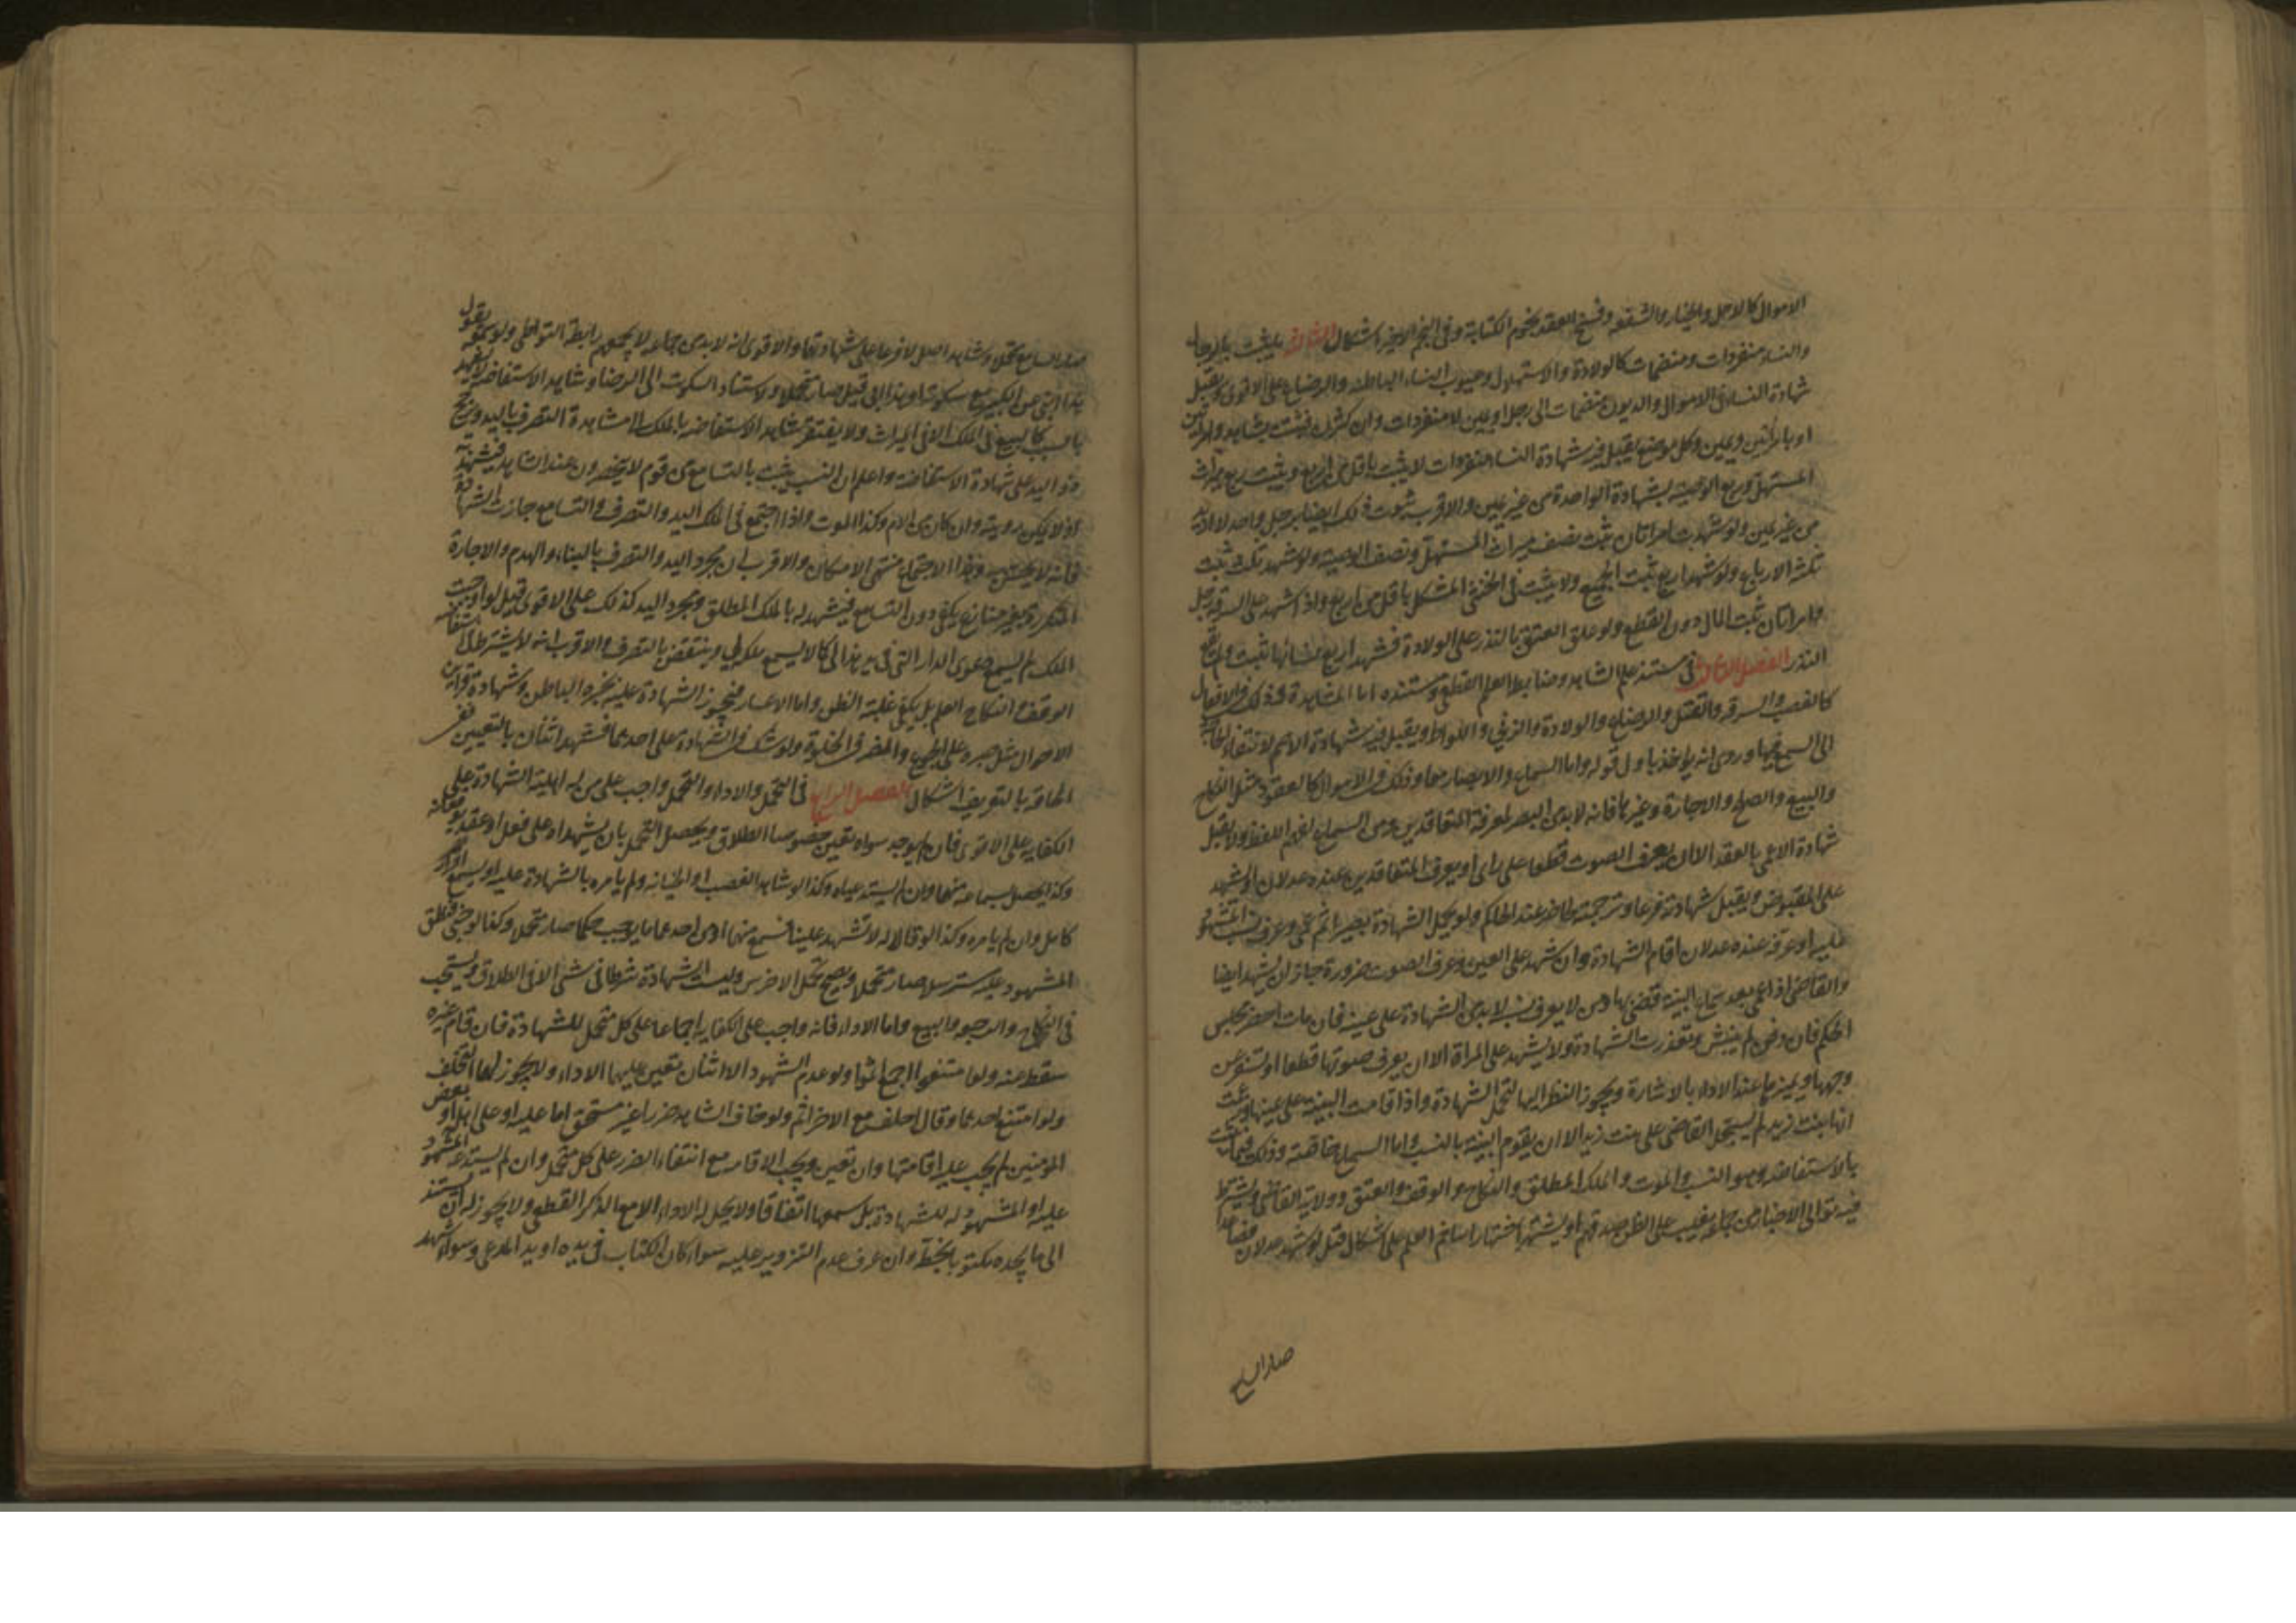 الاموال كالاجل والخيار والشفعه وفسخ العقد ونجوم الكتابة وفي النجم الاخير اشكال الثالث ما يثبت بالرجال
والنساء منفردات ومنضمات كالولادة والاستهلال وعيوب النساء الباطنه والرضاع على الاقوى ويقبل
شهادة النساء في الاموال والديون منضمات الى رجل او يمين لا منفردات وان كثرن فيثبت بشاهد وامراتين
او بامراتين ويمين وكل موضع يقبل فيه شهادة النساء منفردات لا يثبت باقل من اربع ويثبت ربع ميراث
المستهل وربع الوصية بشهادة الواحدة من غير يمين والاقرب ثبوت ذلك ايضا برجل واحد لا ازيد
من غير يمين ولو شهدت امراتان ثبت نصف ميراث المستهل ونصف الوصية ولو شهد ثلث ثبت
ثلثة الارباع ولو شهد اربع ثبت الجميع ولا يثبت في الخنثى المشكل باقل من اربع واذا شهد على السرقة رجل
وامراتان ثبت المال دون القطع ولو علق العتق بالنذر على الولادة فشهد اربع نساء بها ثبت ولم يقع
النذر الفصل الثالث في مستند علم الشاهد وضابطه العلم القطعي ومستنده اما المشاهدة وذلك في الافعال
كالغصب والسرقه والقتل والرضاع والولادة والزنى واللواط ويقبل فيه شهادة الاصم لانتفاء الحاجة
الى السمع فيها وروى انه يؤخذ باول قوله واما السماع والابصار معا وذلك في الاموال كالعقود مثل النكاح
والبيع والصلح والاجارة وغيرها فانه لا بد من البصر لمعرفة المتعاقدين ومن السماع لفهم اللفظ ولا يقبل
شهادة الاعمى بالعقد الا ان يعرف الصوت قطعا على راى او يعرف المتعاقدين عنده عدلان او يشهد
على المقبوض ويقبل شهادته فرعا وترجمته لحاضر عند الحاكم ولو تحمل الشهادة بصيرا ثم عمى وعرف نسب المشهود
عليه او عرفه عنده عدلان اقام الشهادة وان شهد على العين وعرف الصوت ضرورة جاز ان يشهد ايضا
والقاضي اذا عمى بعد سماع البينة قضى بها ومن لا يعرف نسبه لا بد من الشهادة على عينه فان مات احضر مجلس
الحكم فان دفن لم ينبش وتعذرت الشهادة ولا يشهد على المراة الا ان يعرف صوتها قطعا او تسفر عن
وجهها ويميزها عند الاداء بالاشارة ويجوز النظر اليها لتحمل الشهادة واذا قامت البينة على عينها وزعمت
انها بنت زيد لم يسجل القاضي على بنت زيد الا ان يقوم البينة بالنسب واما السماع خاصة وذلك فيما يثبت
بالاستفاضه وهو النسب والموت والملك المطلق والنكاح والوقف والعتق وولاية القاضي ويشترط
فيه توالى الاخبار من جماعة يغلب على الظن صدقهم او يشتهر اشتهارا يتاخم العلم على اشكال قيل لو شهد عدلان فصاعدا
صار السامع
صار السامع متحملا وشاهد اصل لا فرعا على شهادتهما والاقوى انه لا بد من جماعة لا يجمعهم رابطة التواطي ولو سمعه يقول
هذا ابني عن الكبير مع سكوته او هذا ابي قيل صار متحملا لاستناد السكوت الى الرضا وشاهد الاستفاضة لا يشهد
بالسبب كالبيع في الملك الا في الميراث ولا يفتقر شاهد الاستفاضه بالملك الى مشاهدة التصرف باليد ويرجح
ذو اليد على شهادة الاستفاضه واعلم ان النسب يثبت بالتسامع من قوم لا ينحصرون عند الشاهد فيشهد به
اذ لا يمكن رويته وان كان من الام وكذا الموت واذا اجتمع في الملك اليد والتصرف والتسامع جازت الشهادة
فانه لا يحصل وهذا الاجتماع منتهى الامكان والاقرب ان مجرد اليد والتصرف بالبناء والهدم والاجارة
المتكررة بغير منازع يكفي دون التسامع فيشهد له بالملك المطلق ومجرد اليد كذلك على الاقوى وقيل لو اوجبت
الملك لم يسمع دعوى الدار التي في يد هذا لي كما لا يسمع ملكه لي وينتقض بالتصرف والاقرب انه لا يشترط في استفاضة
الوقف والنكاح العلم بل يكفي غلبة الظن واما الاعسار فيجوز الشهادة عليه بخبرة الباطن وشهادة قراين
الاحوال مثل صبره على الجوع والضر في الخلوة ولو شك في الشهادة على احدهما فشهد اثنان بالتعيين ففي
الحاقه بالتعريف اشكال الفصل الرابع في التحمل والاداء والتحمل واجب على من له اهلية الشهادة على
الكفايه على الاقوى فان لم يوجد سواه تعين خصوصا الطلاق ويحصل التحمل بان يشهداه على فعل او عقد يوقعانه
وكذا يحصل بسماعه منهما وان لم يستدعياه وكذا لو شاهد الغصب او الجنايه ولم يامره بالشهادة عليه او يسمع اقرار
كامل وان لم يامره وكذا لو قالا له لا تشهد علينا فسمع منهما او من احدهما ما يوجب حكما صار متحملا وكذا لو خبي فنطق
المشهود عليه مسترسلا صار متحملا ويصح تحمل الاخرس وليست الشهادة شرطا في شي الا في الطلاق ويستحب
في النكاح والرجعه والبيع واما الاداء فانه واجب على الكفايه اجماعا على كل متحمل للشهادة فان قام غيره
سقط عنه ولو امتنعوا اجمع اثموا ولو عدم الشهود الا اثنان تعين عليهما الاداء ولا يجوز لهما التخلف
ولو امتنع احدهما وقال احلف مع الاخر اثم ولو خاف الشاهد ضررا غير مستحق اما عليه او على اهله او بعض
المؤمنين لم يجب عليه اقامتها وان تعين ويجب الاقامه مع انتفاء الضرر على كل متحمل وان لم يستدعه المشهود
عليه او المشهود له للشهادة بل سمعها اتفاقا ولا يحل له الاداء الا مع الذكر القطعي ولا يجوز له ان يستند
الى ما يجده مكتوبا بخطه وان عرف عدم التزوير عليه سواء كان الكتاب في يده او يد المدعى وسواء شهد